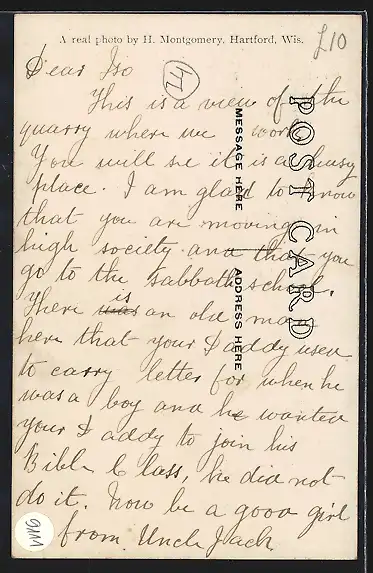 A real photo by H. Montgomery, Hartford, Wis.
£10
Dear Iso
This is a view of the
quarry where we work
You will se it is a busy
place. I am glad to know
that you are moving in
high society and that you
go to the sabbath school.
There was is an old man
here that your Daddy used
to carry letter for when he
was a boy and he wanted
your Daddy to join his
Bible Class, he did not
do it. Now be a good girl
from Uncle Jack.
POST CARD
MESSAGE HERE
ADDRESS HERE